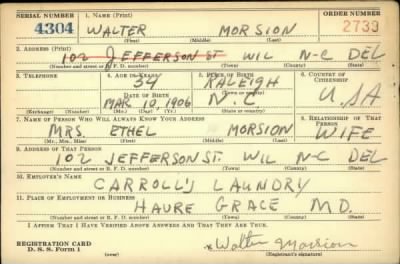 SERIAL NUMBER 1. NAME (Print) ORDER NUMBER
4304 WALTER MORSION 2739
(First) (Middle) (Last)
2. ADDRESS (Print)
102 JEFFERSON ST WIL N-C DEL
(Number and street or R. F. D. number) (Town) (County) (State)
3. TELEPHONE 4. AGE IN YEARS 5. PLACE OF BIRTH 6. COUNTRY OF CITIZENSHIP
34 RALEIGH
DATE OF BIRTH (Town or county)
MAR 10 1906 N.C U.S.A
(Exchange) (Number) (Mo.) (Day) (Yr.) (State or country)
7. NAME OF PERSON WHO WILL ALWAYS KNOW YOUR ADDRESS 8. RELATIONSHIP OF THAT PERSON
MRS ETHEL MORSION WIFE
(Mr., Mrs., Miss) (First) (Middle) (Last)
9. ADDRESS OF THAT PERSON
102 JEFFERSON ST. WIL N-C DEL
(Number and street or R. F. D. number) (Town) (County) (State)
10. EMPLOYER'S NAME
CARROLL'S LAUNDRY
11. PLACE OF EMPLOYMENT OR BUSINESS
HAURE GRACE M.D.
(Number and street or R. F. D. number) (Town) (County) (State)
I AFFIRM THAT I HAVE VERIFIED ABOVE ANSWERS AND THAT THEY ARE TRUE.
REGISTRATION CARD
D. S. S. Form 1 x Walter Morsion
(over) (Registrant's signature)